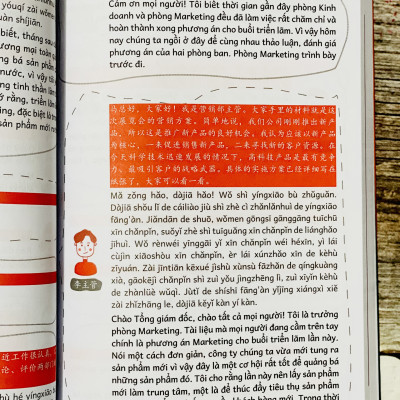 shíjiān.
biết, tháng sau
nước, vì vậy
sản phẩm mới
Cảm ơn mọi người! Tôi biết thời gian gần đây phòng Kinh
doanh và phòng Marketing đều đã làm việc rất chăm chỉ và
hoàn thành xong phương án cho buổi triển lãm. Vì vậy hôm
nay chúng ta ngồi ở đây để cùng nhau thảo luận, đánh giá
phương án của hai phòng ban. Phòng Marketing trình bày
trước đi.
马总好，大家好！我是营销部主管。大家手里的材料就是这
次展览会的营销方案。简单地说，我们公司刚刚推出新产
品，所以这是推广新产品的良好机会。我认为应该以新产品
为核心，一来促进销售新产品，二来寻找新的客户资源。在
今天科学技术迅速发展的情况下，高科技产品是最有竞争
力、最吸引客户的战略武器。具体的实施方案已经详细写在
纸张了，大家可以看一看。
Mǎ zǒng hǎo, dàjiā hǎo! Wǒ shì yíngxiāo bù zhǔguǎn.
Dàjiā shǒu lǐ de cáiliào jiù shì zhè cì zhǎnlǎnhuì de yíngxiāo
fāng'àn. Jiǎndān de shuō, wǒmen gōngsī gānggāng tuīchū
xīn chǎnpǐn, suǒyǐ zhè shì tuīguǎng xīn chǎnpǐn de liánghǎo
jīhuì. Wǒ rènwéi yīnggāi yǐ xīn chǎnpǐn wéi héxīn, yì lái
cùjìn xiāoshòu xīn chǎnpǐn, èr lái xúnzhǎo xīn de kèhù
zīyuán. Zài jīntiān kēxué jìshù xùnsù fāzhǎn de qíngkuàng
xià, gāokējì chǎnpǐn shì zuì yǒu jìngzhēng lì, zuì xīyǐn kèhù
de zhànlüè wǔqì. Jùtǐ de shíshī fāng'àn yǐjīng xiángxì xiě
zài zhǐzhāng le, dàjiā kěyǐ kàn yí kàn.
李主管
Chào Tổng giám đốc, chào tất cả mọi người! Tôi là trưởng
phòng Marketing. Tài liệu mà mọi người đang cầm trên tay
chính là phương án Marketing cho buổi triển lãm lần này.
Nói một cách đơn giản, công ty chúng ta vừa mới tung ra
sản phẩm mới vì vậy đây là một cơ hội rất tốt để quảng bá
những sản phẩm đó. Tôi cho rằng lần này nên lấy sản phẩm
mới làm trung tâm, một là để thúc đẩy tiêu thụ sản phẩm